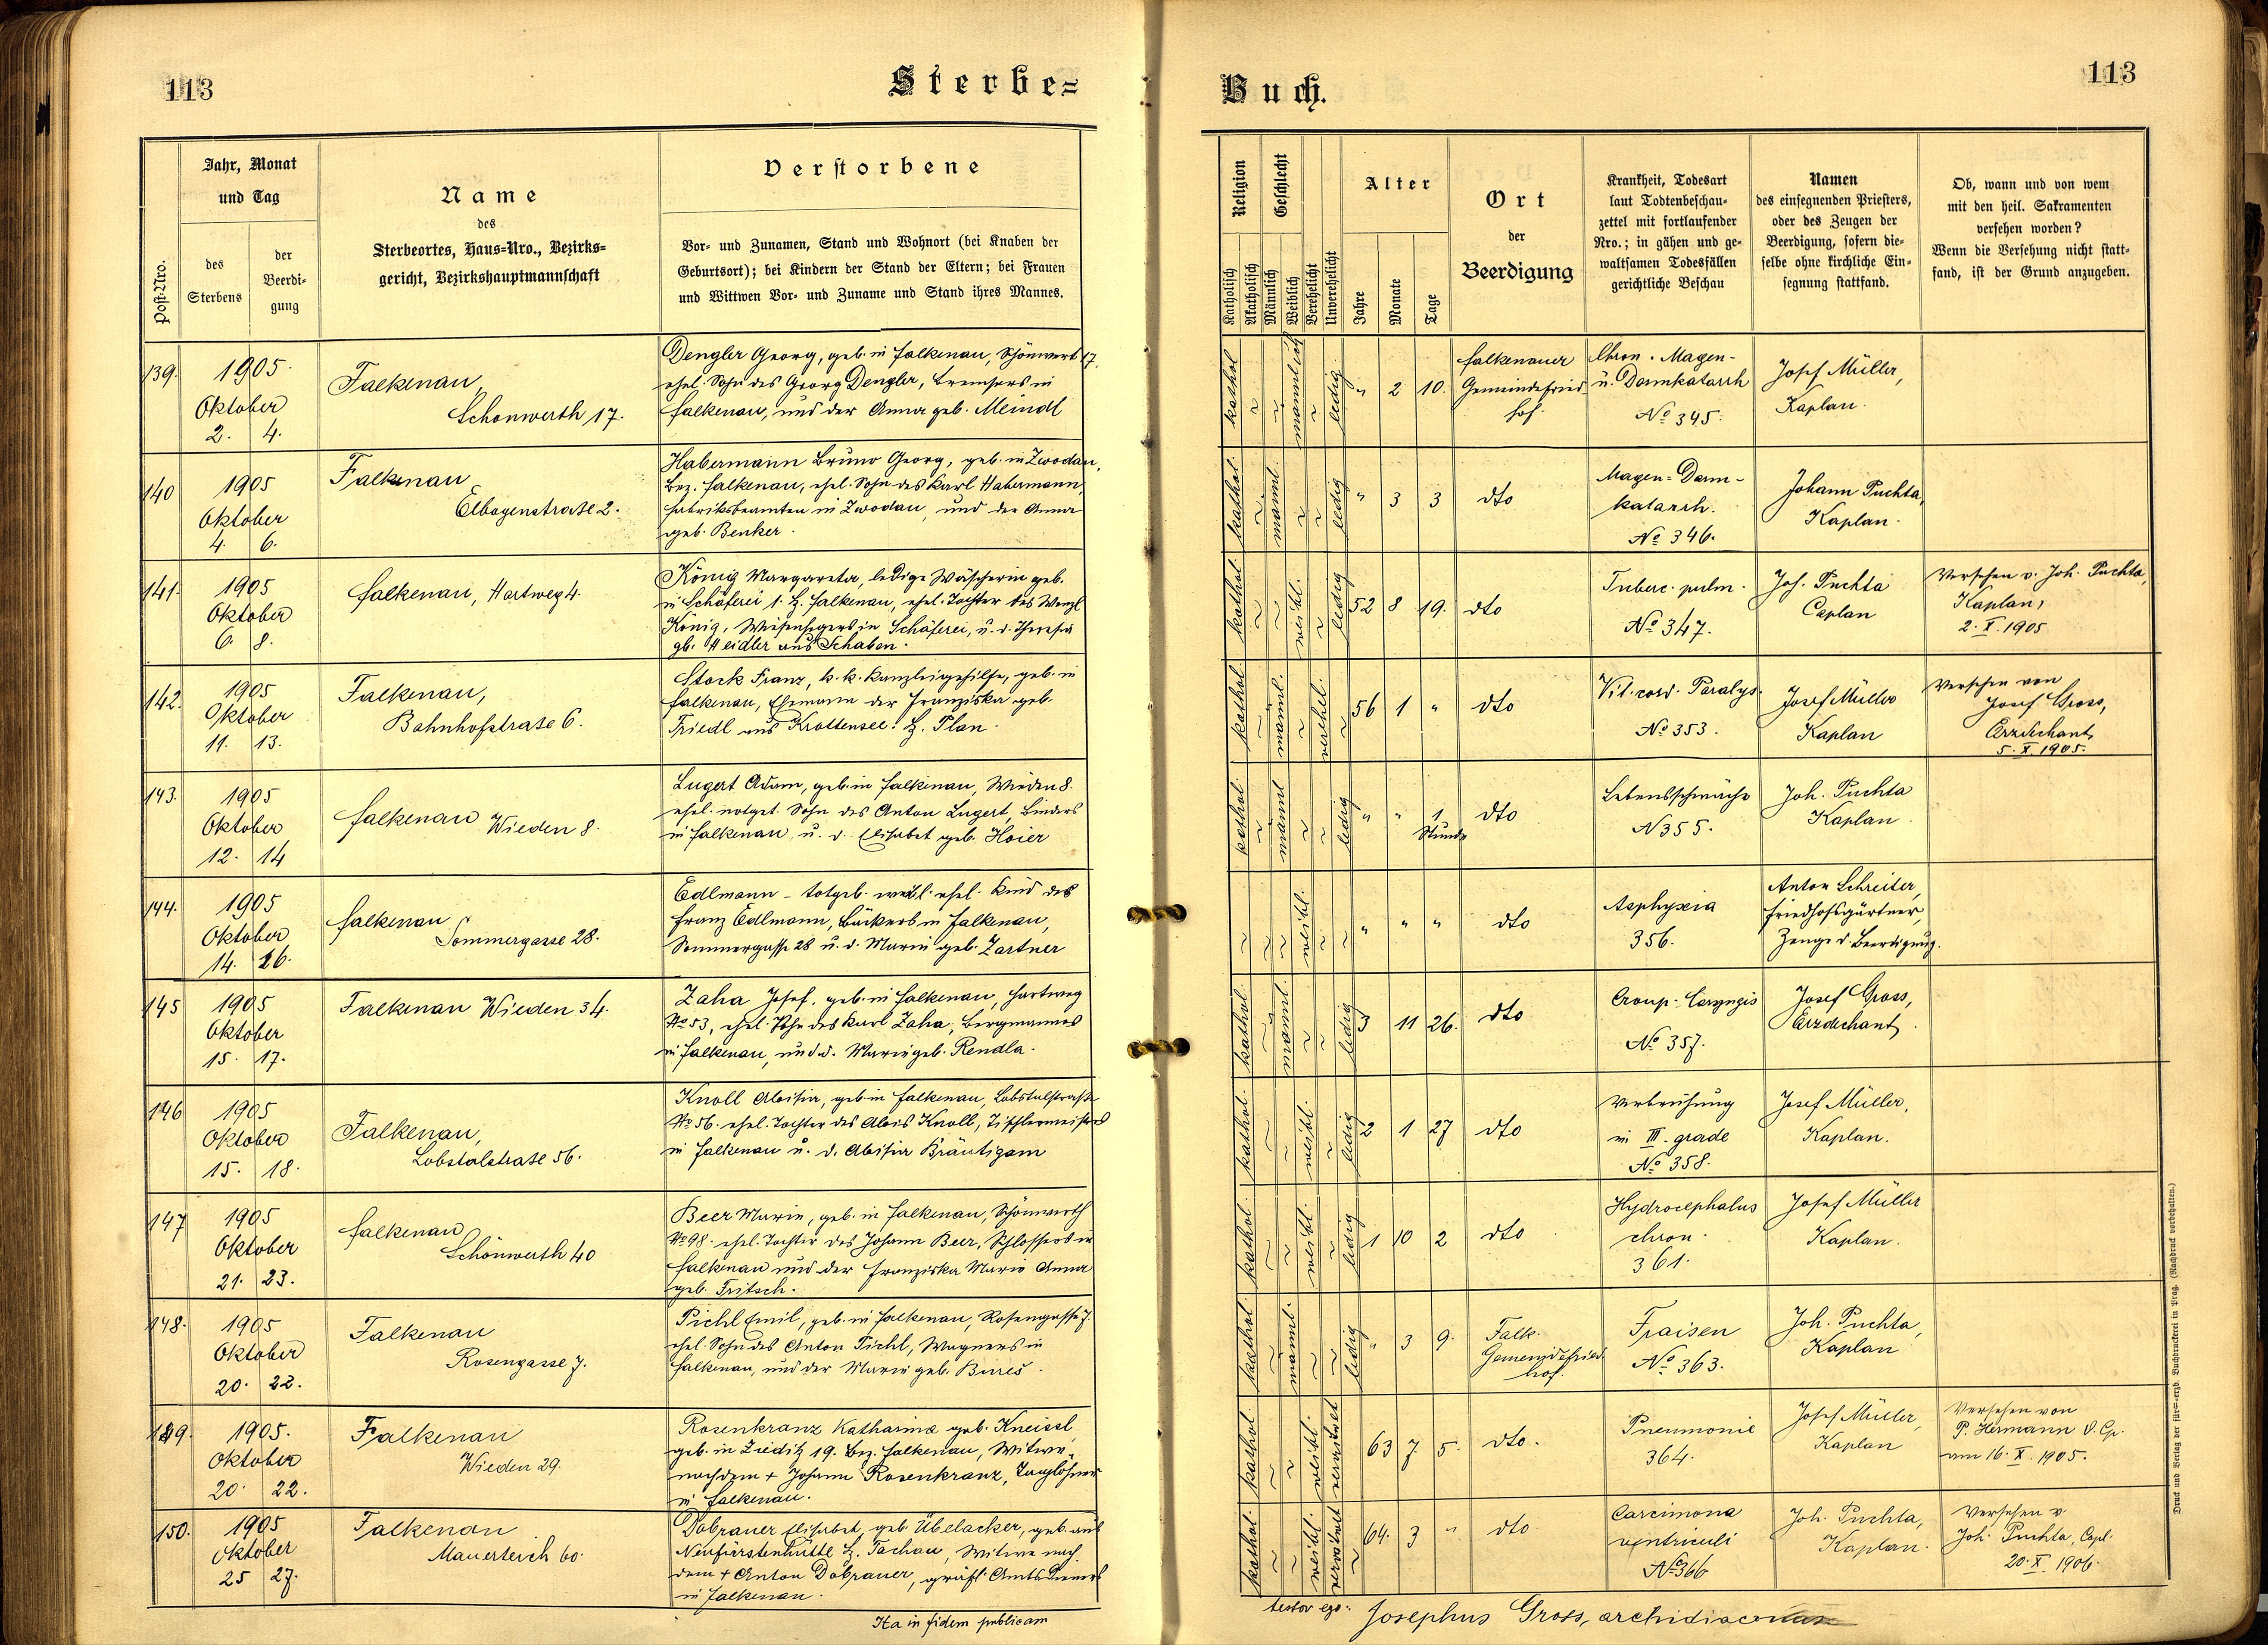 113
Sterbe=
Jahr, Monat
und Tag
Name
des
Sterbeortes, Haus=Nro., Bezirks=
gericht, Bezirkshauptmannschaft
Verstorbene
Vor= und Zunamen, Stand und Wohnort (bei Knaben der
Geburtsort); bei Kindern der Stand der Eltern; bei Frauen
und Wittwen Vor= und Zuname und Stand ihres Mannes.
Post-Nro.
des
Sterbens
der
Beerdi=
gung
139.
1905.
Oktober
2. 4.
Falkenau,
Schönwerth 17.
Dengler Georg, geb. in Falkenau, Schönwerth 17,
ehel. Sohn des Georg Dengler, Bremsers in
Falkenau, und der Anna geb. Meindl
140
1905
Oktober
4. 6.
Falkenau
Elbogenstraße 2.
Habermann Bruno Georg, geb. in Zwodau,
Bez. Falkenau, ehel. Sohn des Karl Habermann,
Fabriksbeamten in Zwodau, und der Anna
geb. Benker.
141.
1905
Oktober
6. 8.
Falkenau, Hartweg 4.
König Margareta, ledige Wäscherin geb.
in Schäferei 1. B. Falkenau, ehel. Tochter des Wenzl
König, in Schäferei, u. d. Theresia
gb. Heidler aus Schaben.
142.
1905
Oktober
11. 13.
Falkenau,
Bahnhofstraße 6.
Stock Franz, k. k. Kanzleigehilfe, geb. in
Falkenau, Ehemann der Franziska geb.
Friedl aus Krottensee B. Plan.
143.
1905
Oktober
12. 14
Falkenau Wieden 8.
Lugert Adam, geb. in Falkenau, Wieden 8.
ehel. notget. Sohn des Anton Lugert, Binders
in Falkenau, u. d. Elisabet geb. Hoier
144.
1905
Oktober
14. 16.
Falkenau,
Sommergasse 28.
Edlmann – totgeb. weibl. ehel. Kind des
Franz Edlmann, Bäckers in Falkenau,
Sommergasse 28 u. d. Marie geb. Zartner
145
1905
Oktober
15. 17.
Falkenau Wieden 34.
Zaha Josef, geb. in Falkenau, Hartweg
No 53, ehel. Sohn des Karl Zaha, Bergmannes
in Falkenau, und d. Marie geb. Rendla.
146
1905
Oktober
15. 18.
Falkenau,
Lobstalstraße 56.
Knoll Aloisia, geb. in Falkenau, Lobstalstraße
No 56. ehel. Tochter des Alois Knoll, Tischlermeisters
in Falkenau u. d. Aloisia Bräutigam
147
1905
Oktober
21. 23.
Falkenau
Schönwerth 40
Beer Marie, geb. in Falkenau, Schönwerth
No 98. ehel. Tochter des Johann Beer, Schlossers in
Falkenau und der Franziska Marie Anna
geb. Fritsch.
148.
1905
Oktober
20. 22.
Falkenau
Rosengasse 7.
Pichl Emil, geb. in Falkenau, Rosengasse 7.
ehel. Sohn des Anton Pichl, Wagners in
Falkenau, und der Marie geb. Bureš.
149.
1905.
Oktober
20. 22.
Falkenau
Wieden 29.
Rosenkranz Katharina geb. Kneissl
geb. in Zieditz 19. Bez. Falkenau, Witwe
nach dem + Johann Rosenkranz, Taglöhner
in Falkenau.
150.
1905
Oktober
25 27.
Falkenau
Mauerteich 60.
Dobrauer Elisabet, geb. Übelacker, geb. aus
Neufürstenhütte B. Tachau, Witwe nach
dem + Anton Dobrauer, gräfl. Amts Dieners
in Falkenau.
Ita in fidem publicam
Buch.
113
Religion
Geschlecht
Alter
Ort
der
Beerdigung
Krankheit, Todesart
laut Todtenbeschau=
zettel mit fortlaufender
Nro.; in gähen und ge=
waltsamen Todesfällen
gerichtliche Beschau
Namen
des einsegnenden Priesters,
oder des Zeugen der
Beerdigung, sofern die=
selbe ohne kirchliche Ein=
segnung stattfand.
Ob, wann und von wem
mit den heil. Sakramenten
versehen worden?
Wenn die Versehung nicht statt=
fand, ist der Grund anzugeben.
Katholisch
Akatholisch
Männlich
Weiblich
Verehelicht
Unverehelicht
Jahre
Monate
Tage
kathol
männlich
ledig
" 2 10.
Falkenauer
Gemeindefried=
hof.
Chron. Magen-
u. Darmkatarrh
No 345.
Josef Müller,
Kaplan.
kathol.
männl.
ledig
" 3 3
dto
Magen=Darm-
katarrh.
No 346.
Johann Puchta,
Kaplan.
kathol.
weibl.
ledig
52 8 19.
dto
Tuberc. pulm.
No 347.
Joh. Puchta
Caplan
Versehen v. Joh. Puchta,
Kaplan,
2. X. 1905
kathol.
männl.
verehel.
56 1 "
dto
Vit. cord. Paralys.
No 353.
Josef Müller
Kaplan
Versehen von
Josef Gross,
Erzdechant,
5. X. 1905.
kathol.
männl
ledig
" " 1
Stunde
dto
Lebensschwäche
N 355.
Joh. Puchta
Kaplan
weibl.
" " "
dto
Asphyxia
356.
Anton Schreiter,
Friedhofsgärtner,
Zeuge d. Beerdigung.
kathol.
männl
ledig
3 11 26.
dto
Croup. Laryngis
No 357.
Josef Gross,
Erzdechant,
kathol.
weibl.
ledig
2 1 27
dto
Verbrühung
in III. grade
No 358.
Josef Müller,
Kaplan.
kathol.
weibl.
ledig
1 10 2
dto
Hydrocephalus
chron.
361.
Josef Müller
Kaplan.
kathol.
männl.
ledig
" 3 9.
Falk.
Gemeindefried=
hof.
Fraisen
No 363.
Joh. Puchta,
Kaplan
kathol.
weibl.
verwitwet
63 7 5.
dto.
Pneumonie
364.
Josef Müller,
Kaplan
Versehen von
P. Hermann O. Cp.
am 16. X. 1905.
kathol.
weibl.
64. 3 "
dto
Carcinoma
ventriculi
No 366
Joh. Puchta,
Kaplan.
Versehen v.
Joh. Puchta, Capl.
20. X. 1905.
testor ego: Josephus Gross, archidiaconus
Druck und Verlag der fürst=erzb. Buchdruckerei in Prag. (Nachdruck vorbehalten.)